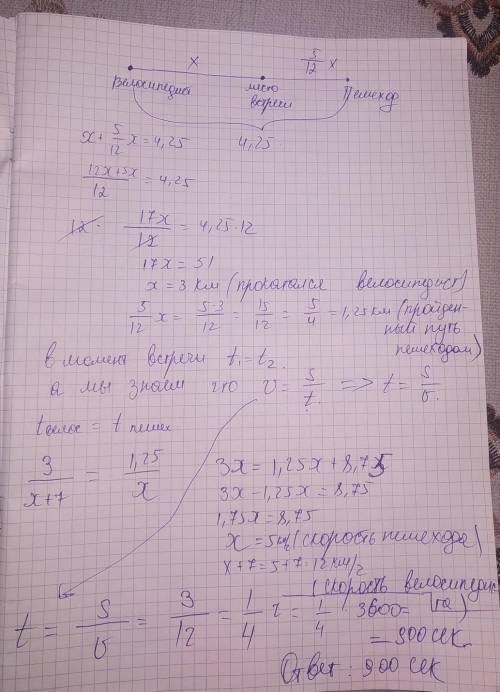 x   5/12 x
Велосипедист   место встречи   Пешеход
x + 5/12 x = 4,25   4,25
(12x+5x)/12 = 4,25
12 · 17x/12 = 4,25·12
17x = 51
x = 3 км (прокатался велосипедист)
5/12 x = 5·3/12 = 15/12 = 5/4 = 1,25 км (пройденный путь пешеходом)
в момент встречи t₁=t₂.
а мы знаем что v = S/t. => t = S/v.
t велос = t пешех
3/(x+7) = 1,25/x
3x = 1,25x + 8,75
3x - 1,25x = 8,75
1,75x = 8,75
x = 5 км/ч (скорость пешехода)
x+7 = 5+7 = 12 км/ч
(скорость велосипедиста)
t = S/v = 3/12 = 1/4 ч = 1/4 · 3600 =
= 900 сек.
Ответ: 900 сек